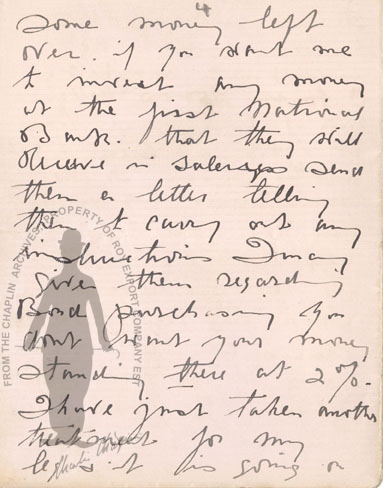 4
some money left
over. if you want me
to invest any money
at the first National
Bank. that they will
receive in salary send
them a letter telling
them to carry out any
instructions I may
given them regarding
Bond purchasing you
dont want your money
standing there at 2%.
I have just taken another
treatment for my
it is going on
FROM THE CHAPLIN ARCHIVES PROPERTY OF ROY EXPORT COMPANY EST